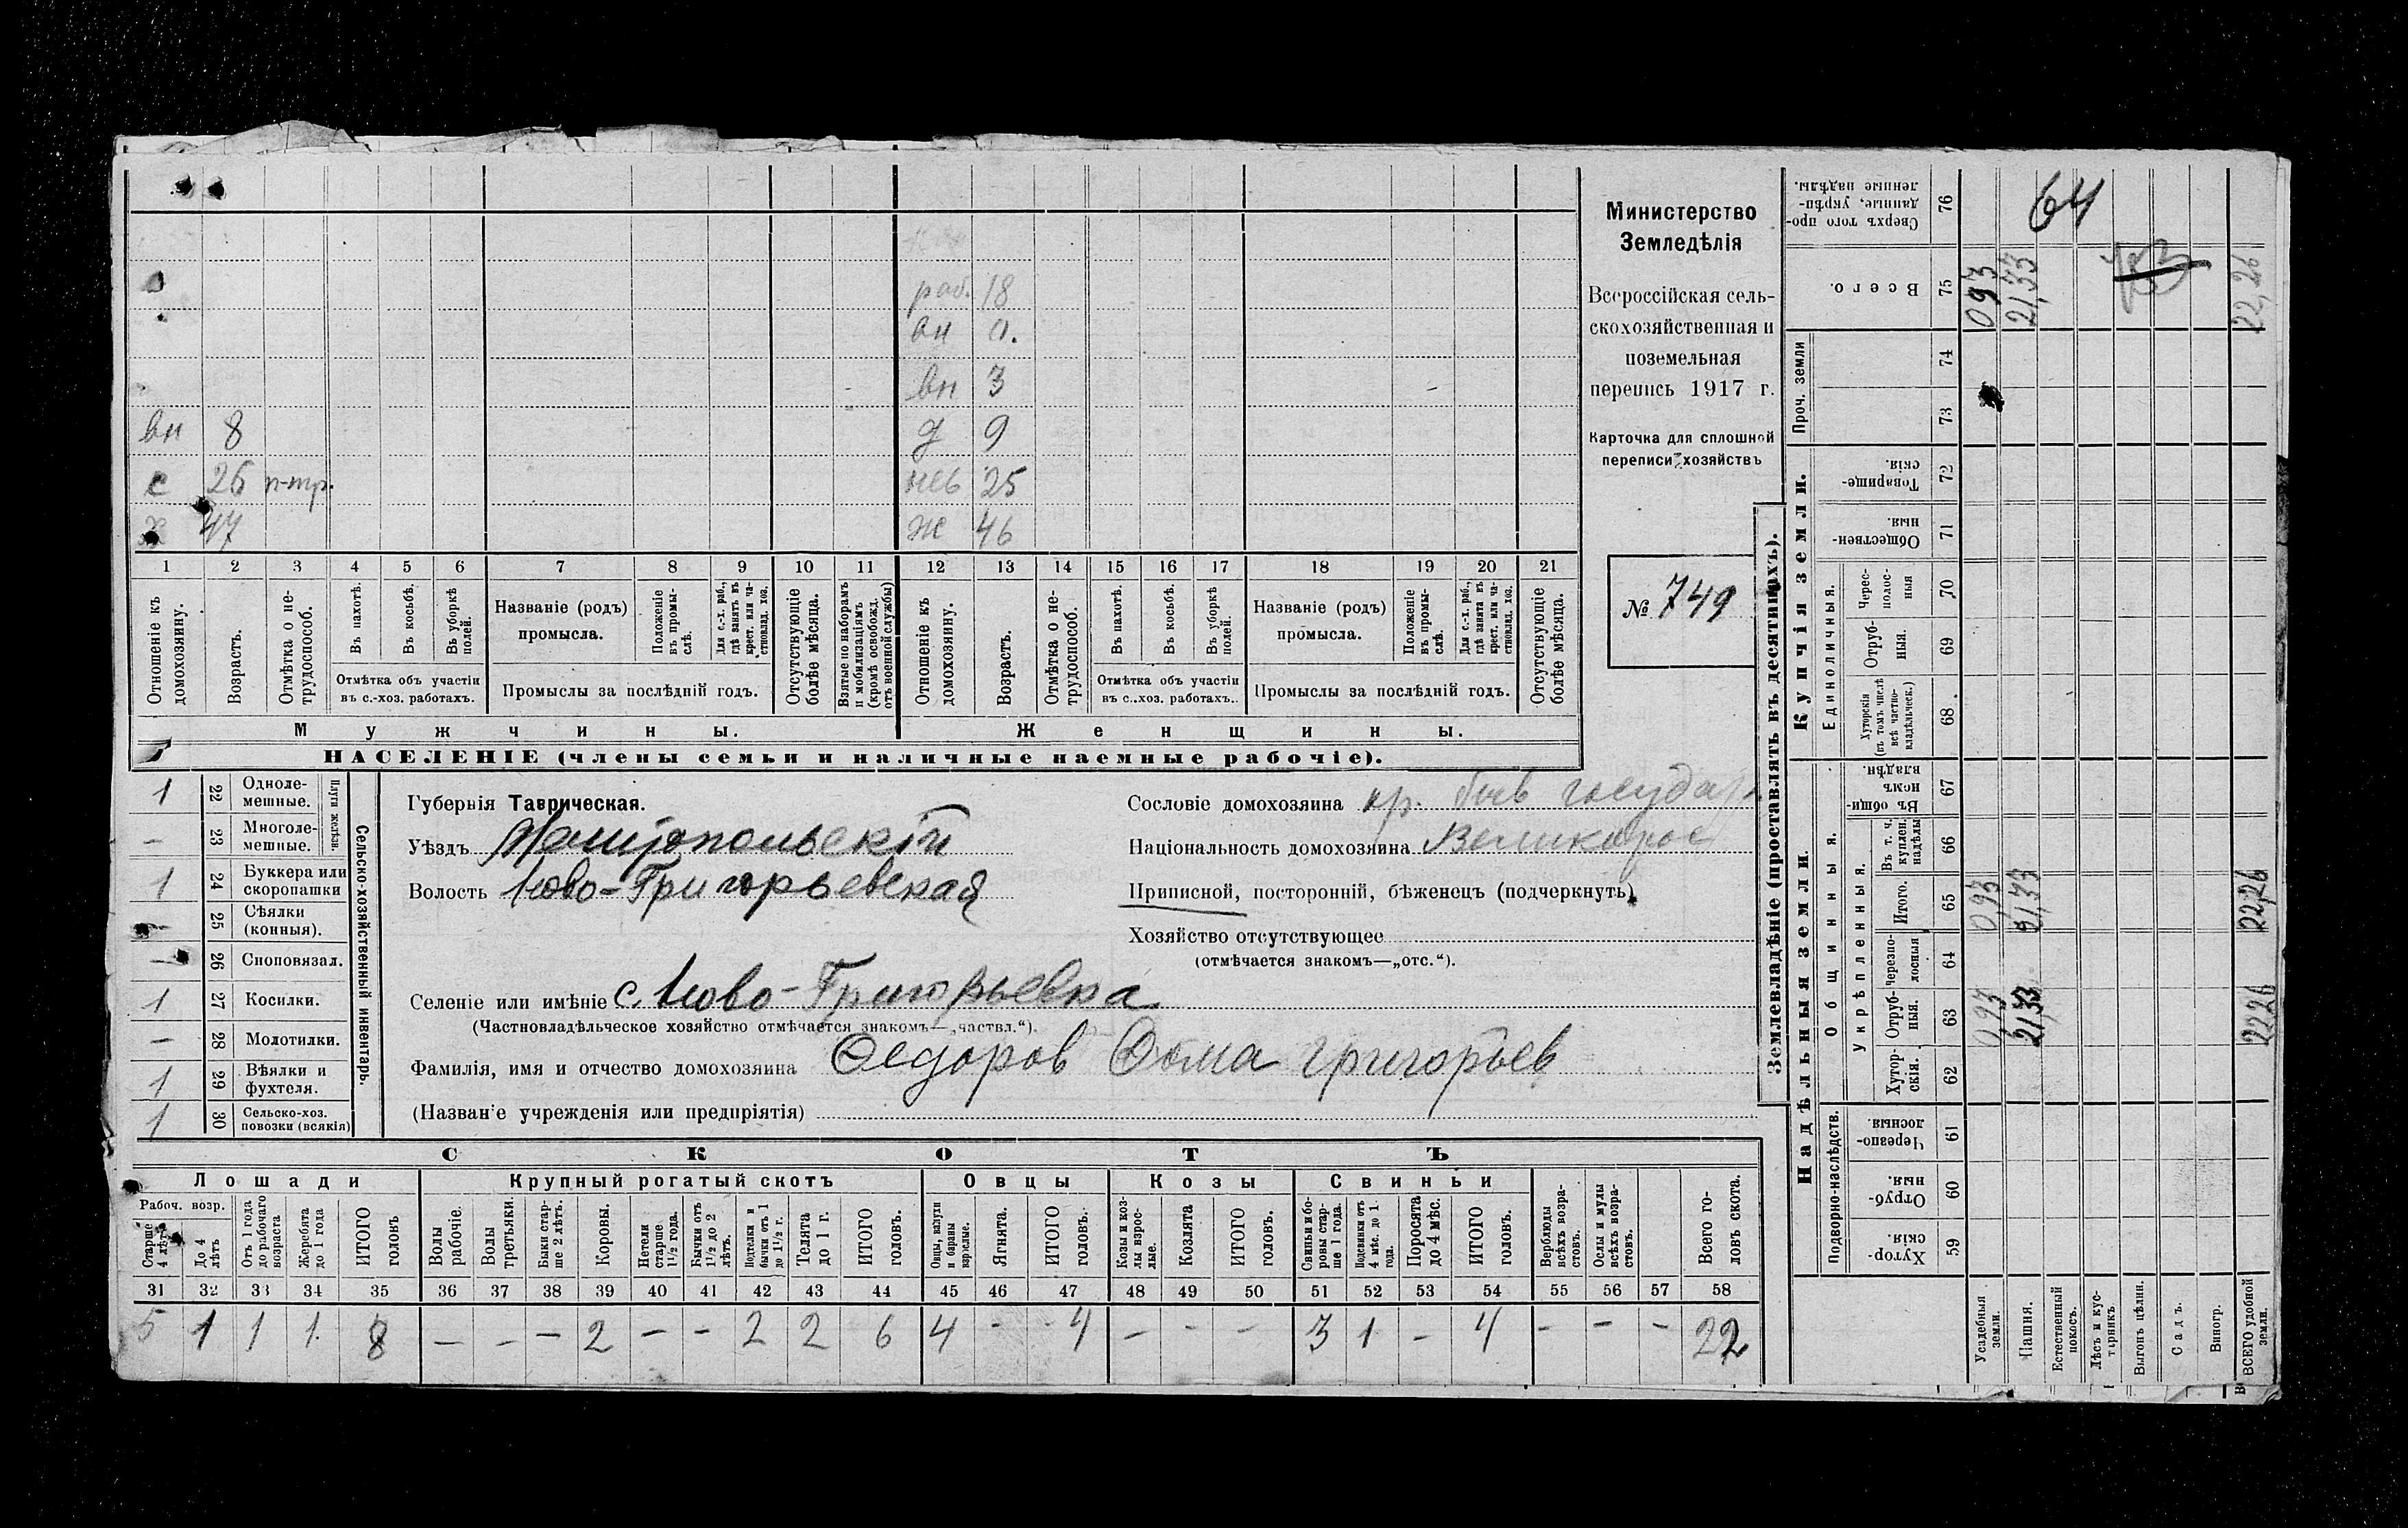 раб. 18
вн 0.
вн 3
вн 8 д 9
с 26 п-тр. нев 25
х 47 ж 46
1 2 3 4 5 6 7 8 9 10 11 12 13 14 15 16 17 18 19 20 21
Отношеніе къ домохозяину.
Возрастъ.
Отмѣтка о не-трудоспособ.
Въ пахотѣ.
Въ косьбѣ.
Въ уборкѣ полей.
Отмѣтка объ участіи
въ с.-хоз. работахъ.
Названіе (родъ)
промысла.
Положеніе въ промы-слѣ.
Для с.-х. раб., гдѣ занятъ въ крест. или ча-стновлад. хоз.
Промыслы за послѣдній годъ.
Отсутствующіе болѣе мѣсяца.
Взятые по наборамъ и мобилизаціямъ (кромѣ освобожд. отъ военной службы)
Отношеніе къ домохозяину.
Возрастъ.
Отмѣтка о не-трудоспособ.
Въ пахотѣ.
Въ косьбѣ.
Въ уборкѣ полей.
Отмѣтка объ участіи
въ с..хоз. работахъ..
Названіе (родъ)
промысла.
Положеніе въ промы-слѣ.
Для с.-х. раб., гдѣ занята въ крест. или ча-стновлад. хоз.
Промыслы за послѣдній годъ.
Отсутствующіе болѣе мѣсяца.
Мужчины. Женщины.
НАСЕЛЕНІЕ (члены семьи и наличные наемные рабочіе).
Министерство
Земледѣлія
Всероссійская сель-
скохозяйственная и
поземельная
перепись 1917 г.
Карточка для сплошной
переписи хозяйствъ
№ 749
1 22 Одноле-мешные.
– 23 Многоле-мешные.
Плуги желѣзн.
1 24 Буккера или скоропашки
25 Сѣялки (конныя).
– 26 Сноповязал.
1 27 Косилки.
– 28 Молотилки.
1 29 Вѣялки и фухтеля.
1 30 Сельско-хоз. повозки (всякія)
Сельско-хозяйственный инвентарь.
Губернія Таврическая.
Уѣздъ Мелитопольскій
Волость Ново-Григорьевская
Сословіе домохозяина кр. быв государ
Національность домохозяина Великорос
Приписной, посторонній, бѣженецъ (подчеркнуть)
Хозяйство отсутствующее
(отмѣчается знакомъ—„отс.“).
Селеніе или имѣніе с. Ново-Григорьевка
(Частновладѣльческое хозяйство отмѣчается знакомъ—„частвл.“).
Фамилія, имя и отчество домохозяина Федоров Фома Григорьев
(Названіе учрежденія или предпріятія)
СКОТЪ
Лошади Крупный рогатый скотъ Овцы Козы Свиньи
Рабоч. возр.
Старше 4 лѣтъ
До 4 лѣтъ
Отъ 1 года до рабочаго возраста
Жеребята до 1 года
ИТОГО головъ
Волы рабочіе.
Волы третьяки.
Быки стар-ше 2 лѣтъ.
Коровы.
Нетели старше 1 1/2 года.
Бычки отъ 1 1/2 до 2 лѣтъ.
Подтелки и бычки отъ 1 до 1 1/2 г.
Телята до 1 г.
ИТОГО головъ.
Овцы, валухи и бараны взрослые.
Ягнята.
ИТОГО головъ.
Козы и коз-лы взрос-лые.
Козлята
ИТОГО головъ.
Свиньи и бо-ровы стар-ше 1 года.
Подсвинки отъ 4 мѣс. до 1. года.
Поросята до 4 мѣс.
ИТОГО головъ.
Верблюды всѣхъ возра-стовъ.
Ослы и мулы всѣхъ возра-стовъ.
Всего го-ловъ скота.
31 32 33 34 35 36 37 38 39 40 41 42 43 44 45 46 47 48 49 50 51 52 53 54 55 56 57 58
5 1 1 1. 8 – – – 2 – – 2 2 6 4 - 4 – - – 3 1 – 4 – – – 22
Землевладѣніе (проставлять въ десятинахъ).
Надѣльныя земли. Купчія земли.
Подворно-наслѣдств.
Общинныя.
Укрѣпленныя.
Единоличныя.
Проч. земли
Сверхъ того про-данные, укрѣп-ленные надѣлы. 76
Всего. 75
74
73
Товарище-скія. 72
Обществен-ныя. 71
Черес-полос-ныя 70
Отруб-ныя. 69
Хуторскія (въ томъ числѣ всѣ частно-владѣльческ.) 68
Въ общин-номъ владѣн. 67
Въ т. ч. куплен. надѣлы 66
Итого. 65
Черезпо-лосныя 64
Отруб-ныя. 63
Хутор-скія. 62
Черезпо-лосныя. 61
Отруб-ныя. 60
Хутор-скія. 59
64
0,93 21,33 22,26
0,93 21,33 22,26
0,93 21,33 22,26
Усадебныя земли.
Пашня.
Естественный покосъ.
Лѣсъ и кус-тарникъ
Выгонъ цѣлин.
Садъ.
Виногр.
ВСЕГО удобной земли.